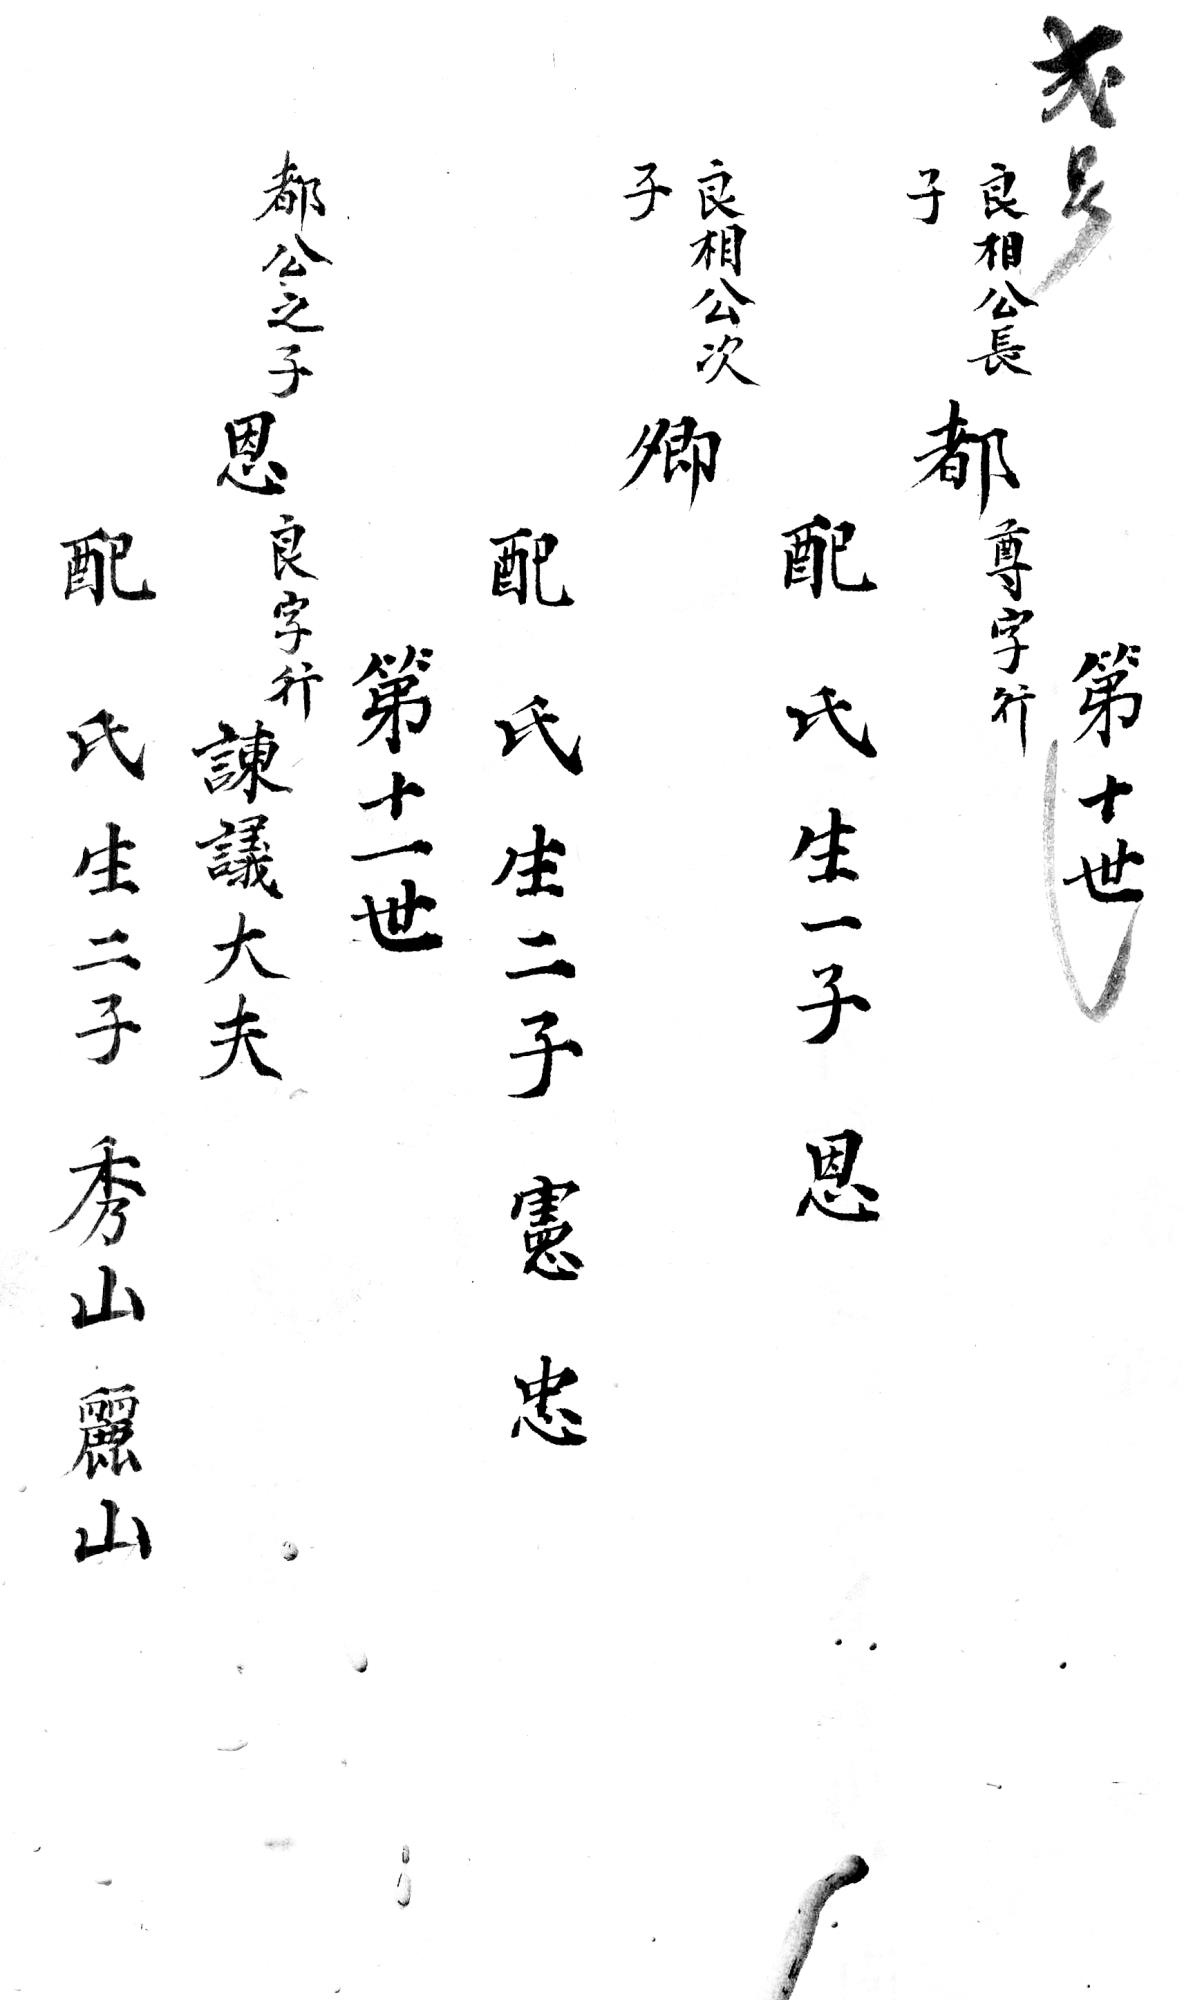 第十世
良相公長
子
都 尊字行
配 氏生一子 恩
良相公次
子
卿
配 氏生二子 憲 忠
第十一世
都公之子 恩 良字行 諫議大夫
配 氏生二子 秀山 麗山